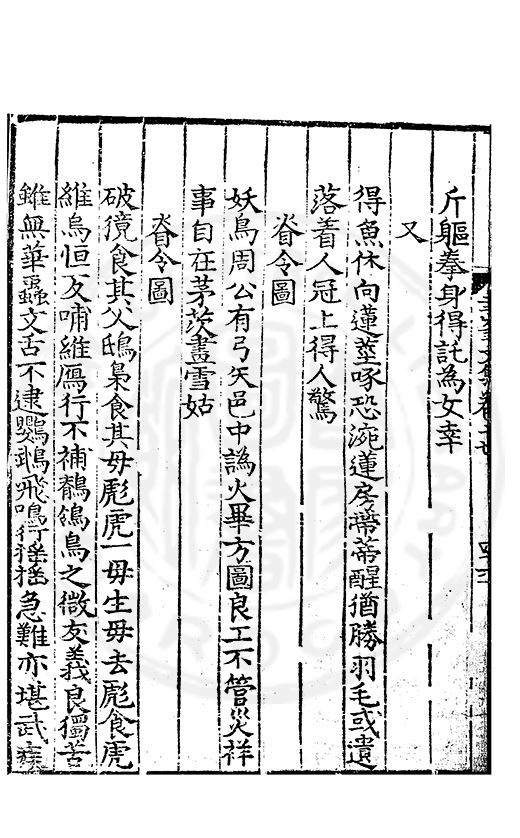 斤軀奉身得託為女幸
又
得魚休向蓮莖啄恐涴蓮房帶茶醒猶勝羽毛或遺
落着人冠上得人驚
脊令圖
妖鳥周公有弓矢邑中譌火畢方圖良工不管災祥
事自在茅茨畫雪姑
脊令圖
破獍食其父鴟梟食其母彪虎一母生母去彪食虎
維烏恒反哺維鴈行不補鶺鴒鳥之微友義良獨苦
雖無華蟲文舌不逮鸚鵡飛鳴行搖搖急難亦堪武